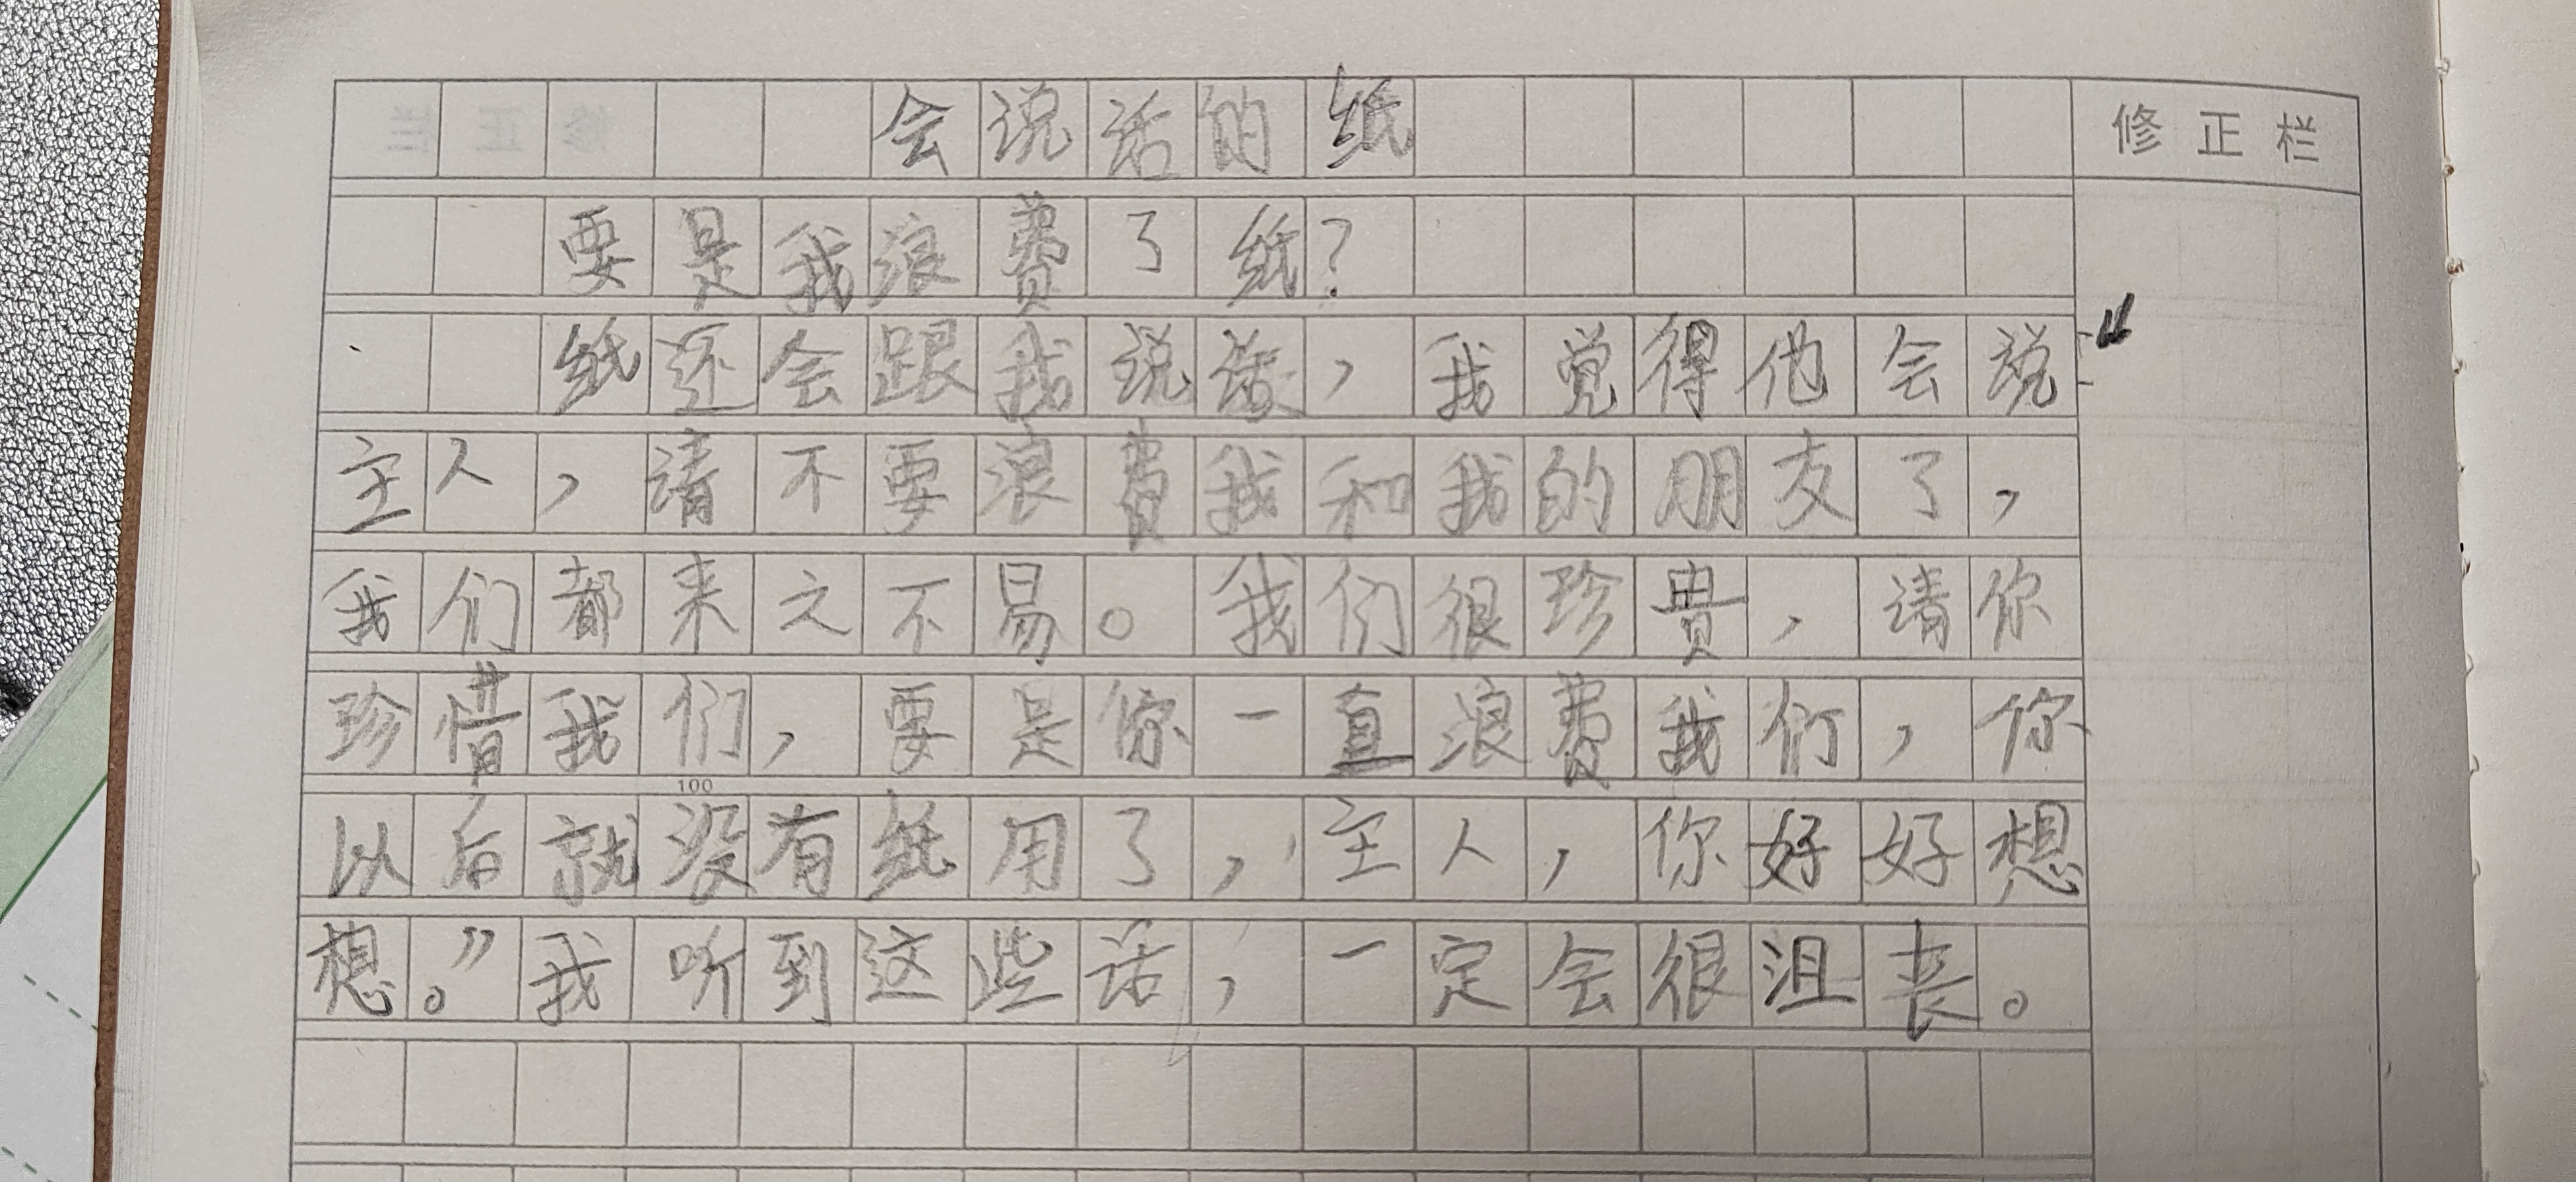 会说话的纸
修正栏
要是我浪费了纸？
纸还会跟我说话，我觉得他会说：“
主人，请不要浪费我和我的朋友了，
我们都来之不易。我们很珍贵，请你
珍惜我们，要是你一直浪费我们，你
100
以后就没有纸用了，主人，你好好想
想。”我听到这些话，一定会很沮丧。